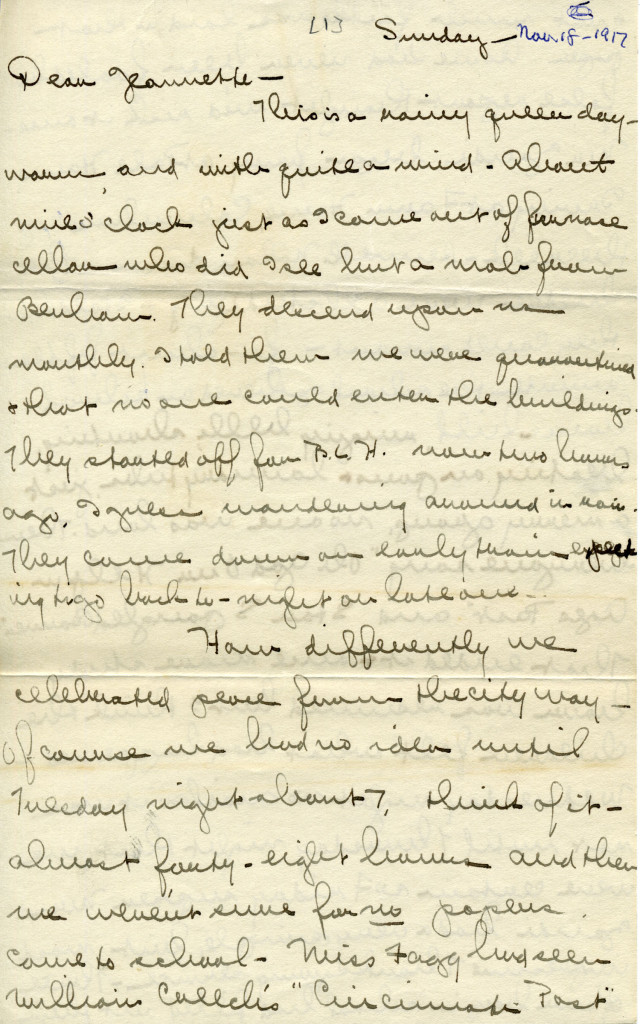 L13
Sunday - Nov 18 - 1917
Dear Jeannette -
This is a rainy queer day -
warm, and with quite a wind - About
nine o'clock just as I came out of furnace
cellar who did I see but a mob from
Benham. They descend upon us
monthly. I told them we were quarantined
& that no one could enter the buildings.
They started off for B.L.H. now two hours
ago, I guess wandering around in rain.
They came down on early train expect
ing to go back to-night on late one -
How differently we
celebrated peace from the city way -
Of course we had no idea until
Tuesday night about 7, think of it -
almost forty-eight hours and then
we weren't sure for no papers
came to school - Miss Fagg had seen
William Creech's "Cincinnati Post"